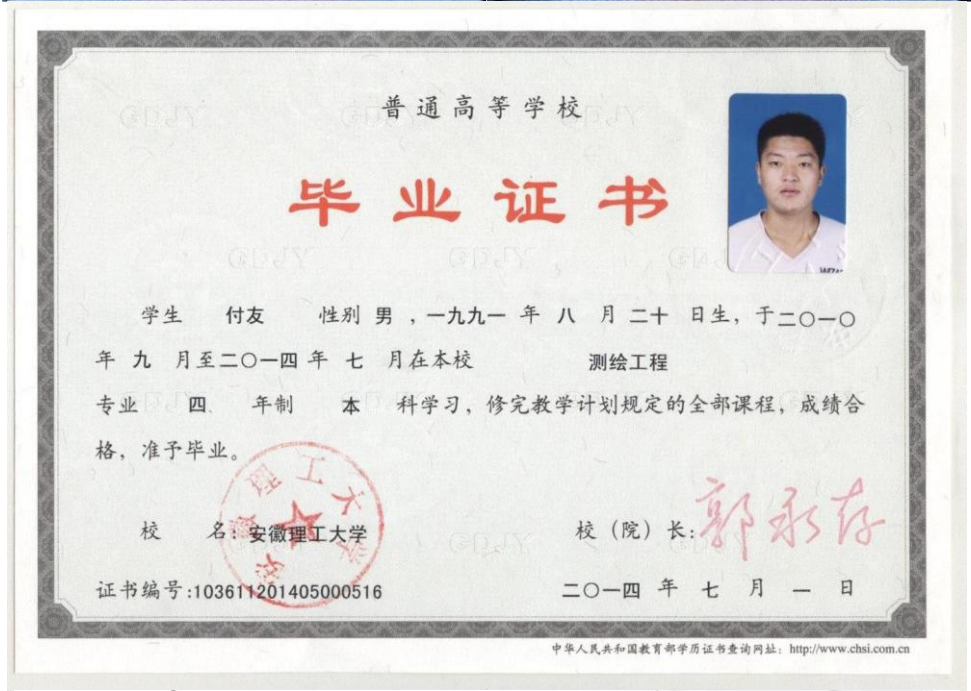 普通高等学校
毕业证书
学生 付友 性别 男 ，一九九一 年 八 月 二十 日生，于二〇一〇
年 九 月至二〇一四年 七 月在本校 测绘工程
专业 四 年制 本 科学习，修完教学计划规定的全部课程，成绩合
格，准予毕业。
安徽理工大学
校 名：安徽理工大学 校（院）长：郭永存
证书编号：103611201405000516 二〇一四 年 七 月 一 日
中华人民共和国教育部学历证书查询网址：http://www.chsi.com.cn